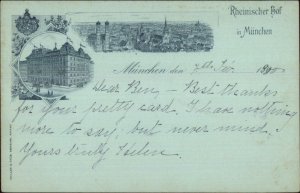 Rheinischer Hof
in München
München den 7th Feb. 1900
Dear Ben, – Best thanks
for your pretty card. I have nothing
more to say; but never mind.
Yours truly Helen